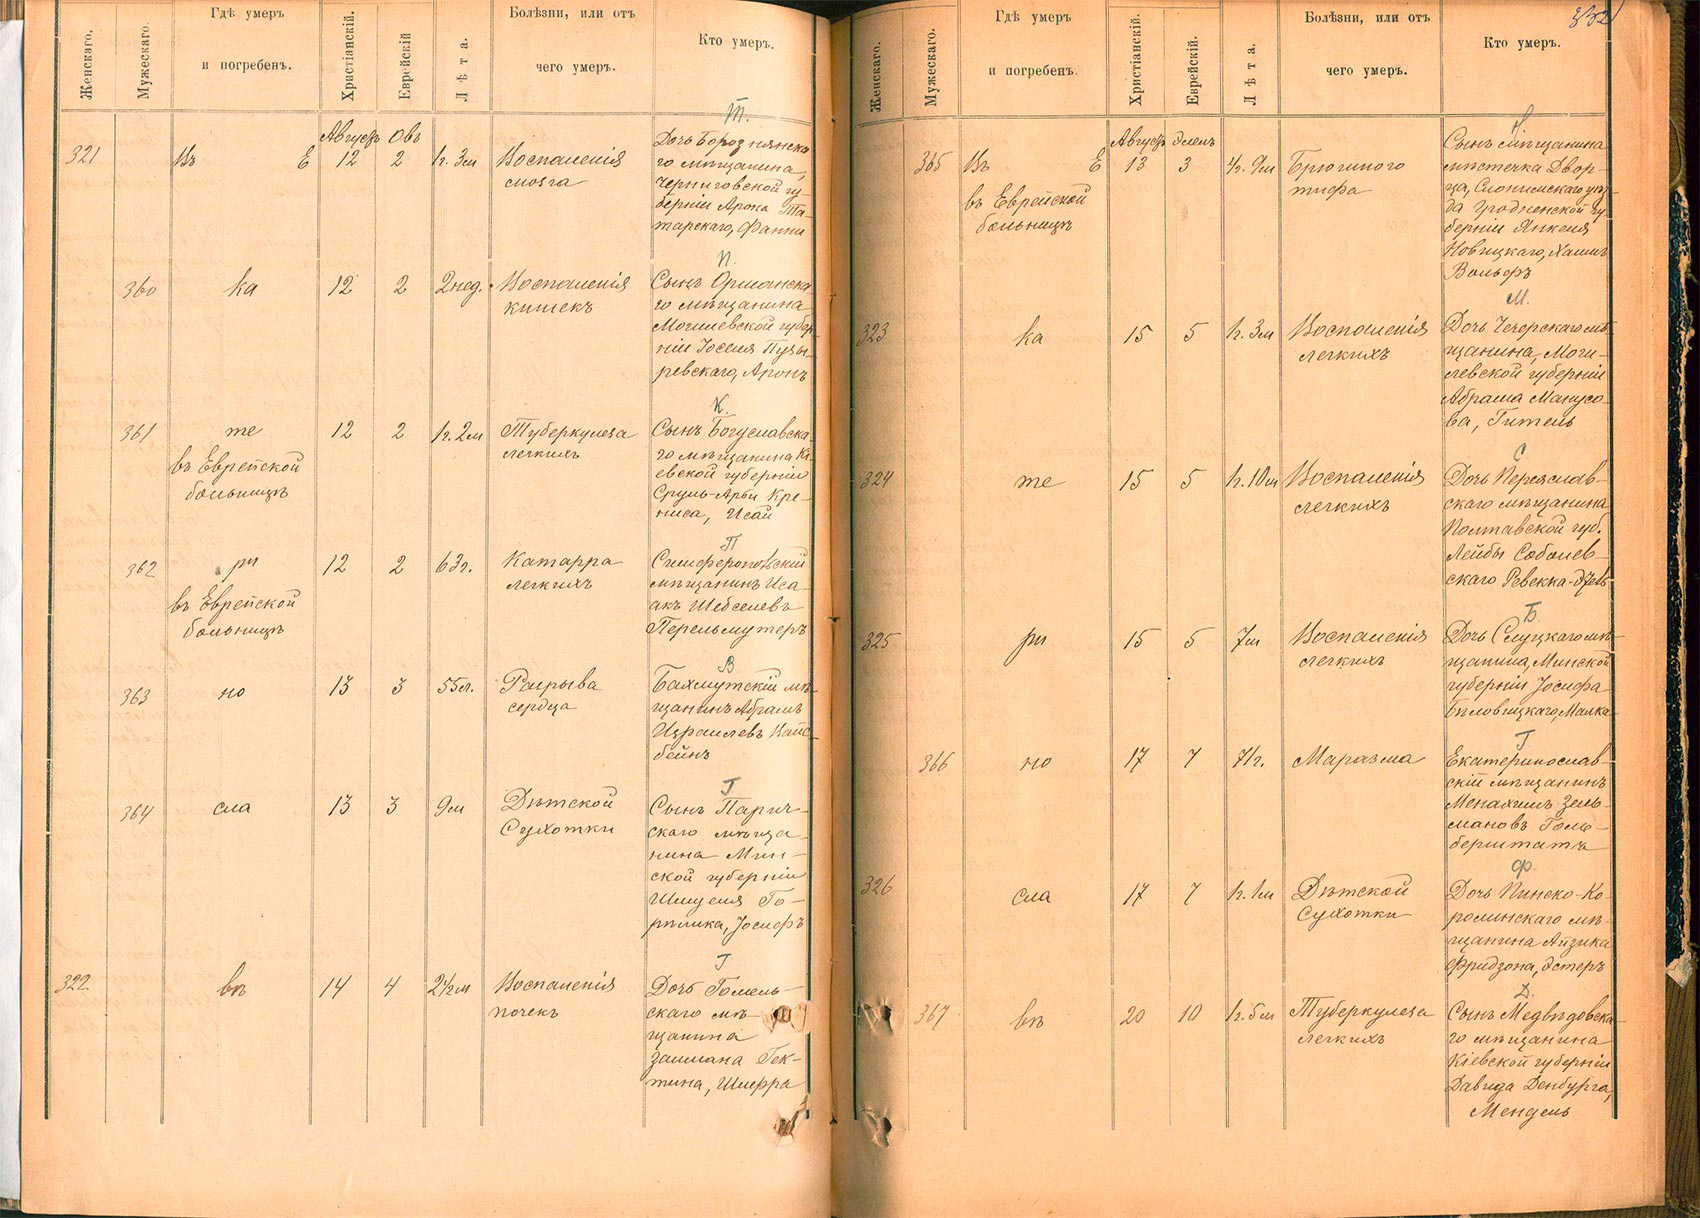 Женскаго.
Мужескаго
Гдѣ умеръ
и погребенъ.
Христіанскій.
Еврейскій
Лѣта.
Болѣзни, или отъ
чего умеръ.
Кто умеръ.
Т.
Августъ Овъ
321 Въ Е 12 2 1г. 3м Воспаленія
мозга
Дочь Бороз нянска
го мѣщанина,
Черниговской гу
берніи Арона Та-
тарскаго, Фанни
П.
360 ка 12 2 2 нед. Воспаленія
кишекъ
Сынъ Оршанска
го мѣщанина
Могилевской губер
ніи Іоселя Пузы-
ревскаго, Аронъ
К.
361 те 12 2 1г. 2м Туберкулеза
легкихъ
въ Еврейской
больницѣ
Сынъ Богуславска
го мѣщанина Кі
евской губерніи
Сруль-Арьи Кре-
ниса, Исай
П
362 ри 12 2 63г. Катарра
легкихъ
въ Еврейской
больницѣ
Симферопольскій
мѣщанинъ Иса-
акъ Шебселевъ
Перельмутеръ
В
363 но 13 3 55л. Разрыва
сердца
Бахмутскій мѣ-
щанинъ Абрамъ
Израилевъ Вайс-
бейнъ
Г
364 сла 13 3 9м Дѣтской
Сухотки
Сынъ Парич-
скаго мѣща-
нина Мин-
ской губерніи
Шмуеля Го-
рѣлика, Іосифъ
Г
322 вѣ 14 4 2½м Воспаленія
почекъ
Дочь Гомель-
скаго мѣ-
щанина
Залмана Гек-
тина, Шлерра
332
Женскаго.
Мужескаго.
Гдѣ умеръ
и погребенъ.
Христіанскій.
Еврейскій.
Лѣта.
Болѣзни, или отъ
чего умеръ.
Кто умеръ.
Н
Августъ Элелъ
365 Въ Е 13 3 4г. 9м Брюшного
тифа
въ Еврейской
больницѣ
Сынъ мѣщанина
мѣстечка Двор-
ца, Слонимскаго уѣз
да Гродненской гу-
берніи Янкеля
Новицкаго, Хаимъ
Вольфъ
М.
323 ка 15 5 1г. 3м Воспаленія
легкихъ
Дочь Чечерскаго мѣ-
щанина, Моги-
левской губерніи
Абрама Манусо-
ва, Гитель
С.
324 те 15 5 1г. 10м Воспаленія
легкихъ
Дочь Переяслав-
скаго мѣщанина
Полтавской губ.
Лейбы Соболев-
скаго Ревекка-
Б
325 ри 15 5 7м Воспаленія
легкихъ
Дочь Слуцкаго мѣ-
щанина, Минской
губерніи Іосифа
Биловицкаго, Малка
Г
366 но 17 7 71г. Маразма
Екатеринослав-
скій мѣщанинъ
Менахимъ Зель-
мановъ Голь-
берштатъ
Ф.
326 сла 17 7 1г. 1м Дѣтской
Сухотки
Дочь Пинско-Ка-
ролинскаго мѣ-
щанина Айзика
Фридзона, Эстеръ
Д.
367 вѣ 20 10 1г. 5м Туберкулеза
легкихъ
Сынъ Медвѣдовска
го мѣщанина
Кіевской губерніи
Давида Денбурга,
Мендель